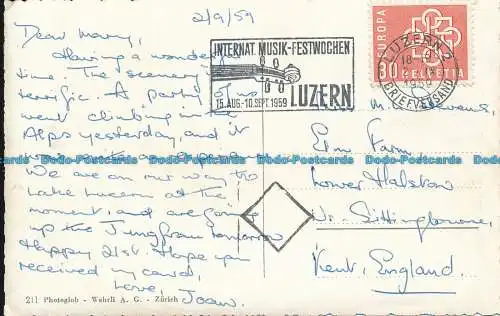 2/9/59
Dear Mary,
Having a wonderful
time. The scenery
terrific. A party of us
went climbing in the
Alps yesterday, and it
We are on our way to
Lake Lucerne at the
moment, and are going
up the Jungfrau tomorrow
Happy 21st. Hope you
received my card,
Love, Joan.
211 Photoglob - Wehrli A. G. - Zürich
INTERNAT. MUSIK-FESTWOCHEN
15. AUG.-10. SEPT. 1959
LUZERN
EUROPA
30 HELVETIA
LUZERN 2
1959
BRIEFVERSAND
M. Stevens,
Elm Farm
Lower Halstow
Nr. Sittingbourne,
Kent, England.
Dodo-Postcards